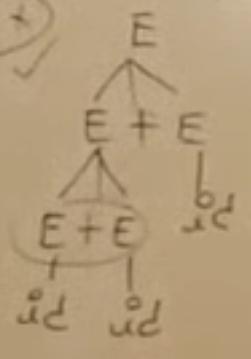 +
E
E + E
E + E id
id id